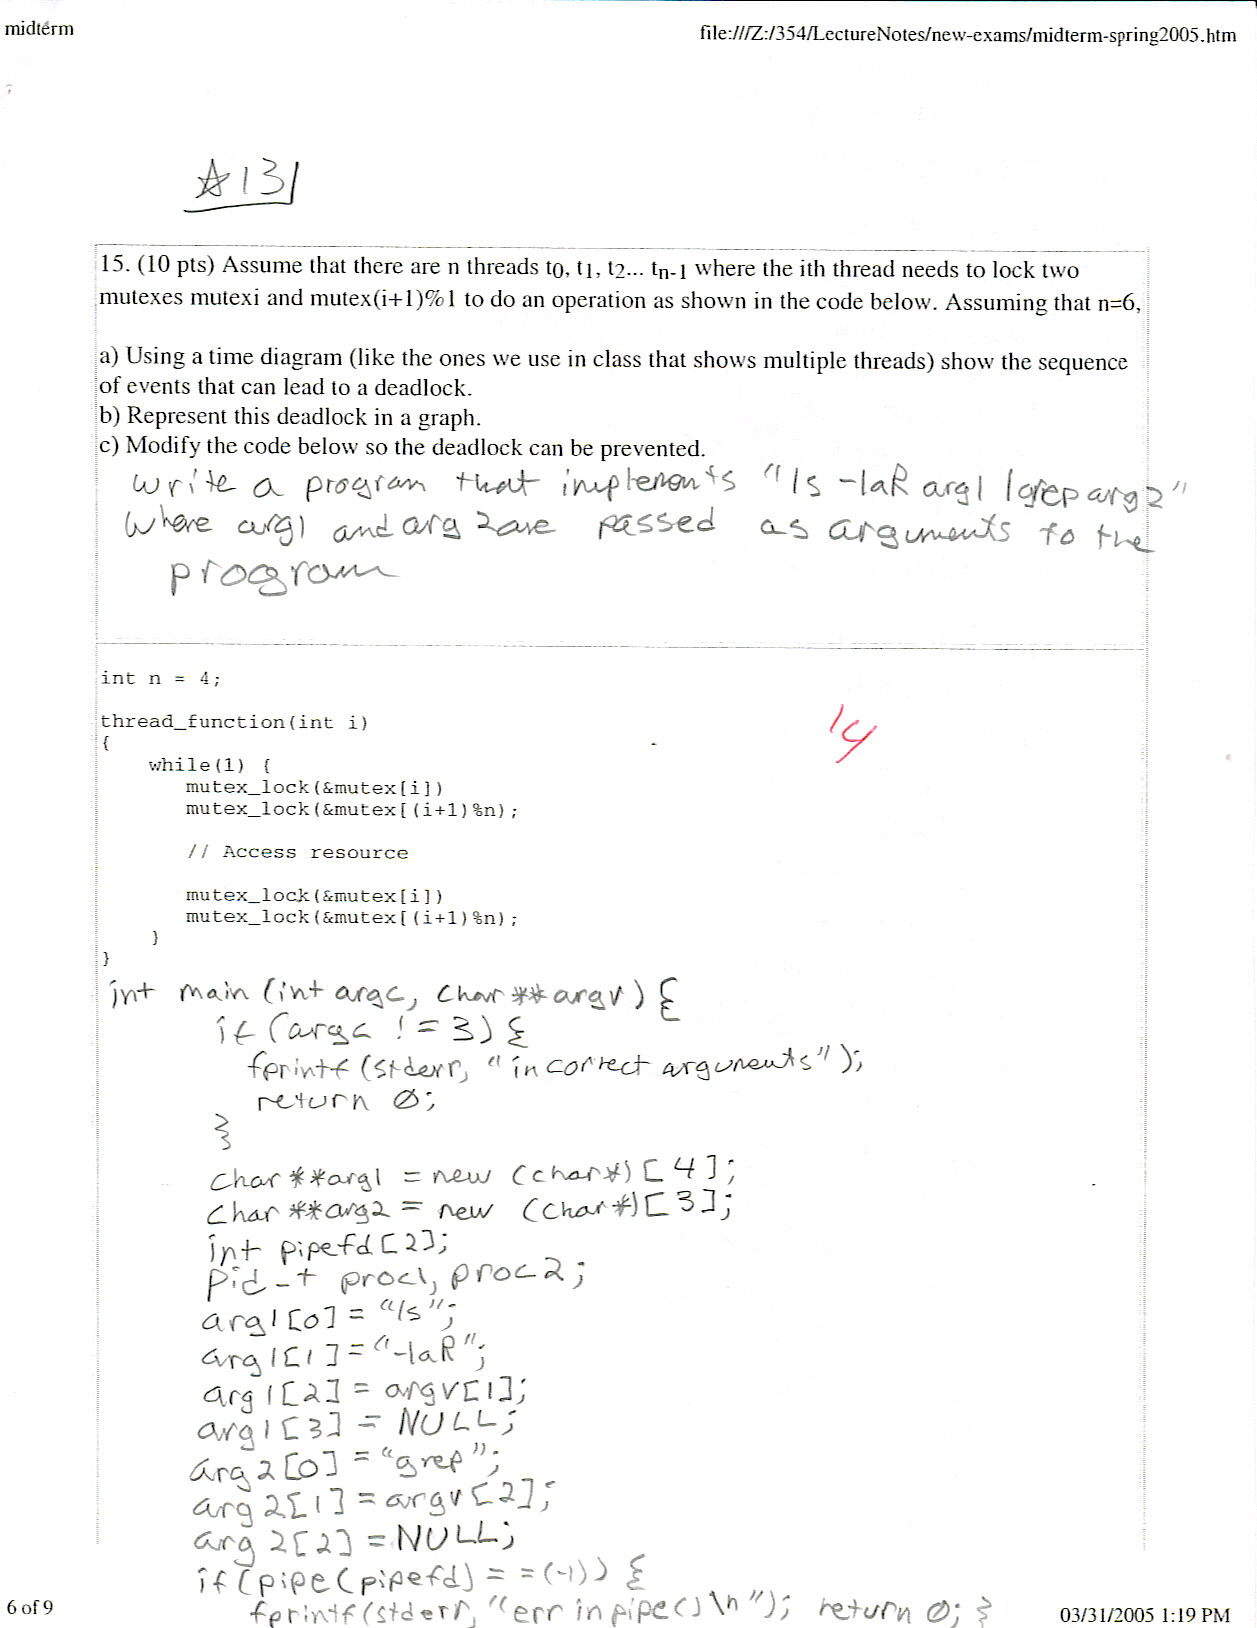 midterm
file:///Z:/354/LectureNotes/new-exams/midterm-spring2005.htm
☆ 131
15. (10 pts) Assume that there are n threads t0, t1, t2... tn-1 where the ith thread needs to lock two
mutexes mutexi and mutex(i+1)%1 to do an operation as shown in the code below. Assuming that n=6,
a) Using a time diagram (like the ones we use in class that shows multiple threads) show the sequence
of events that can lead to a deadlock.
b) Represent this deadlock in a graph.
c) Modify the code below so the deadlock can be prevented.
write a program that implements "ls -laR arg1 | grep arg2"
where arg1 and arg2 are passed as arguments to the
program
int n = 4;
thread_function(int i)
{
while(1) {
mutex_lock(&mutex[i])
mutex_lock(&mutex[(i+1)%n);
// Access resource
mutex_lock(&mutex[i])
mutex_lock(&mutex[(i+1)%n);
}
}
14
int main (int argc, char **argv) {
if (argc != 3) {
fprintf (stderr, "incorrect arguments");
return 0;
}
char **arg1 = new (char*) [4];
char **arg2 = new (char*) [3];
int pipefd[2];
pid_t proc1, proc2;
arg1[0] = "ls";
arg1[1] = "-laR";
arg1[2] = argv[1];
arg1[3] = NULL;
arg2[0] = "grep";
arg2[1] = argv[2];
arg2[2] = NULL;
if (pipe(pipefd) == (-1)) {
fprintf(stderr, "err in pipe() \n"); return 0; }
6 of 9
03/31/2005 1:19 PM